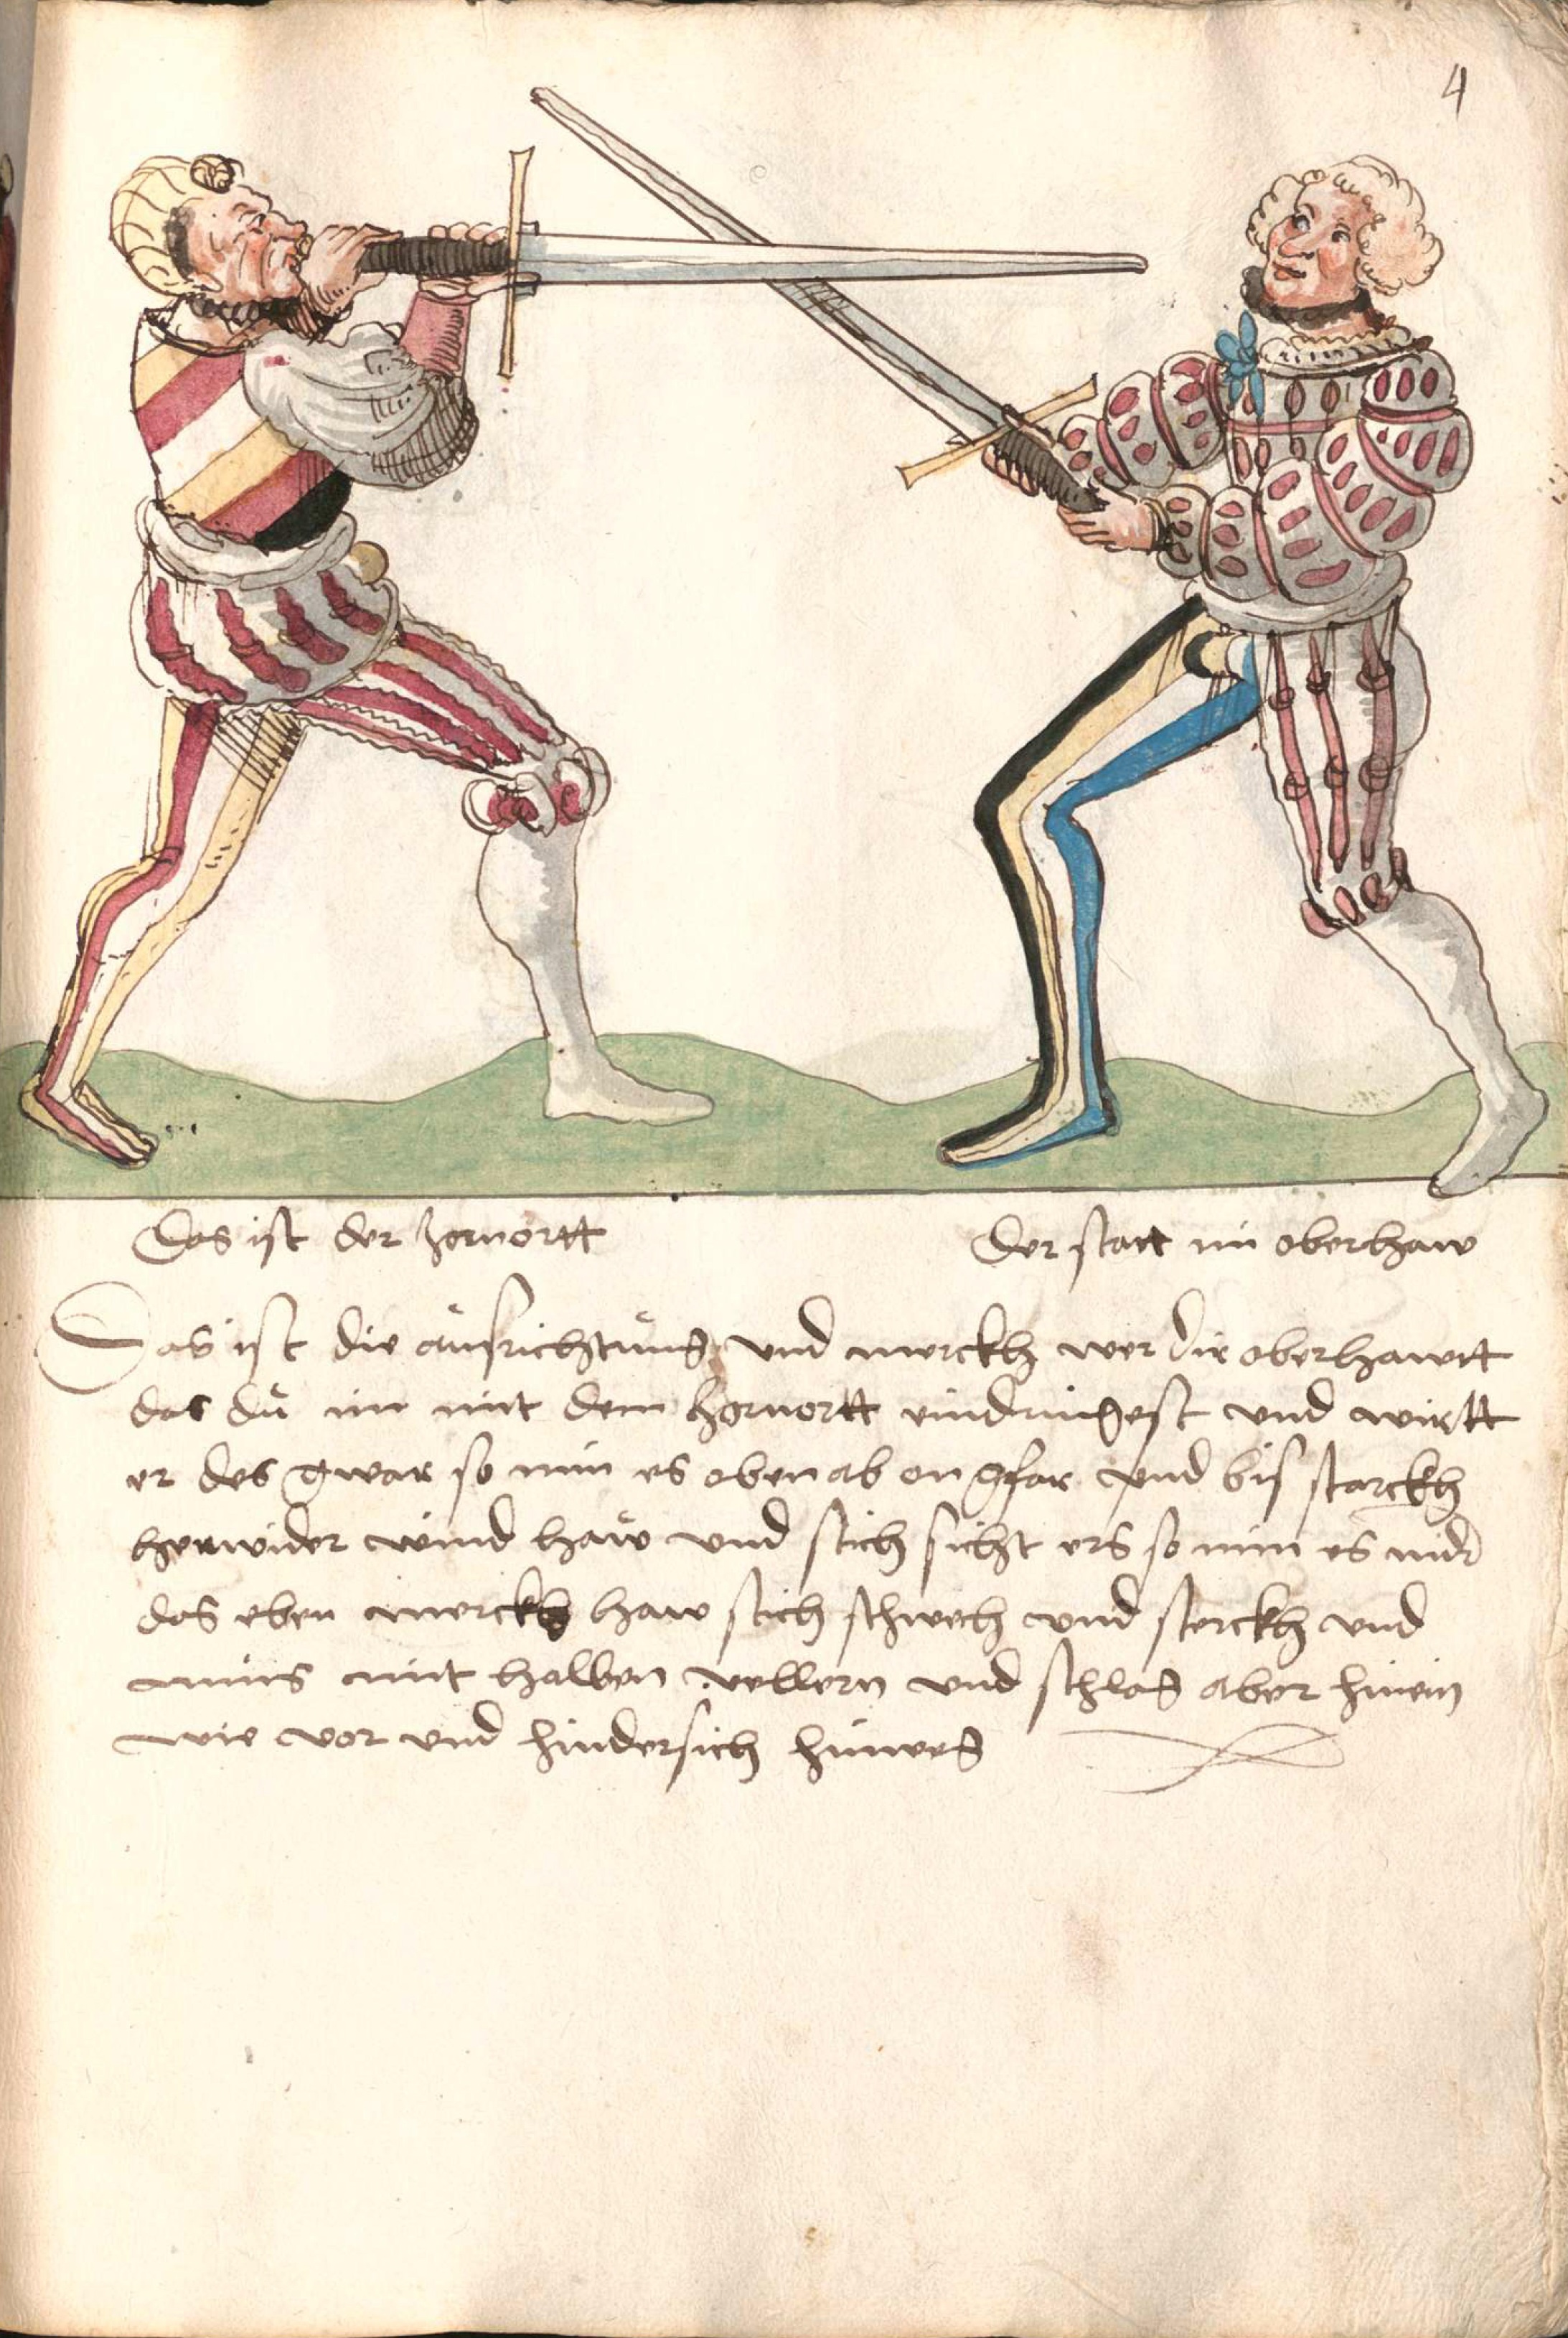 4
Das ist der zornortt
Der statt im oberhaw
Das ist die aůsrichtůng vnd merckh wer dir oberhawtt
das dů im mit dem zornortt eindringest vnd wirtt
er des gwar so nim es oben ab on gfar vnd bis starckh
herwider wind haw vnd stich sicht ers so nim es nidr
das eben merckh haw stich schwech vnd sterckh vnd
mit halben vellern vnd schlag aber hinein
wie vor vnd hindersich hinweg